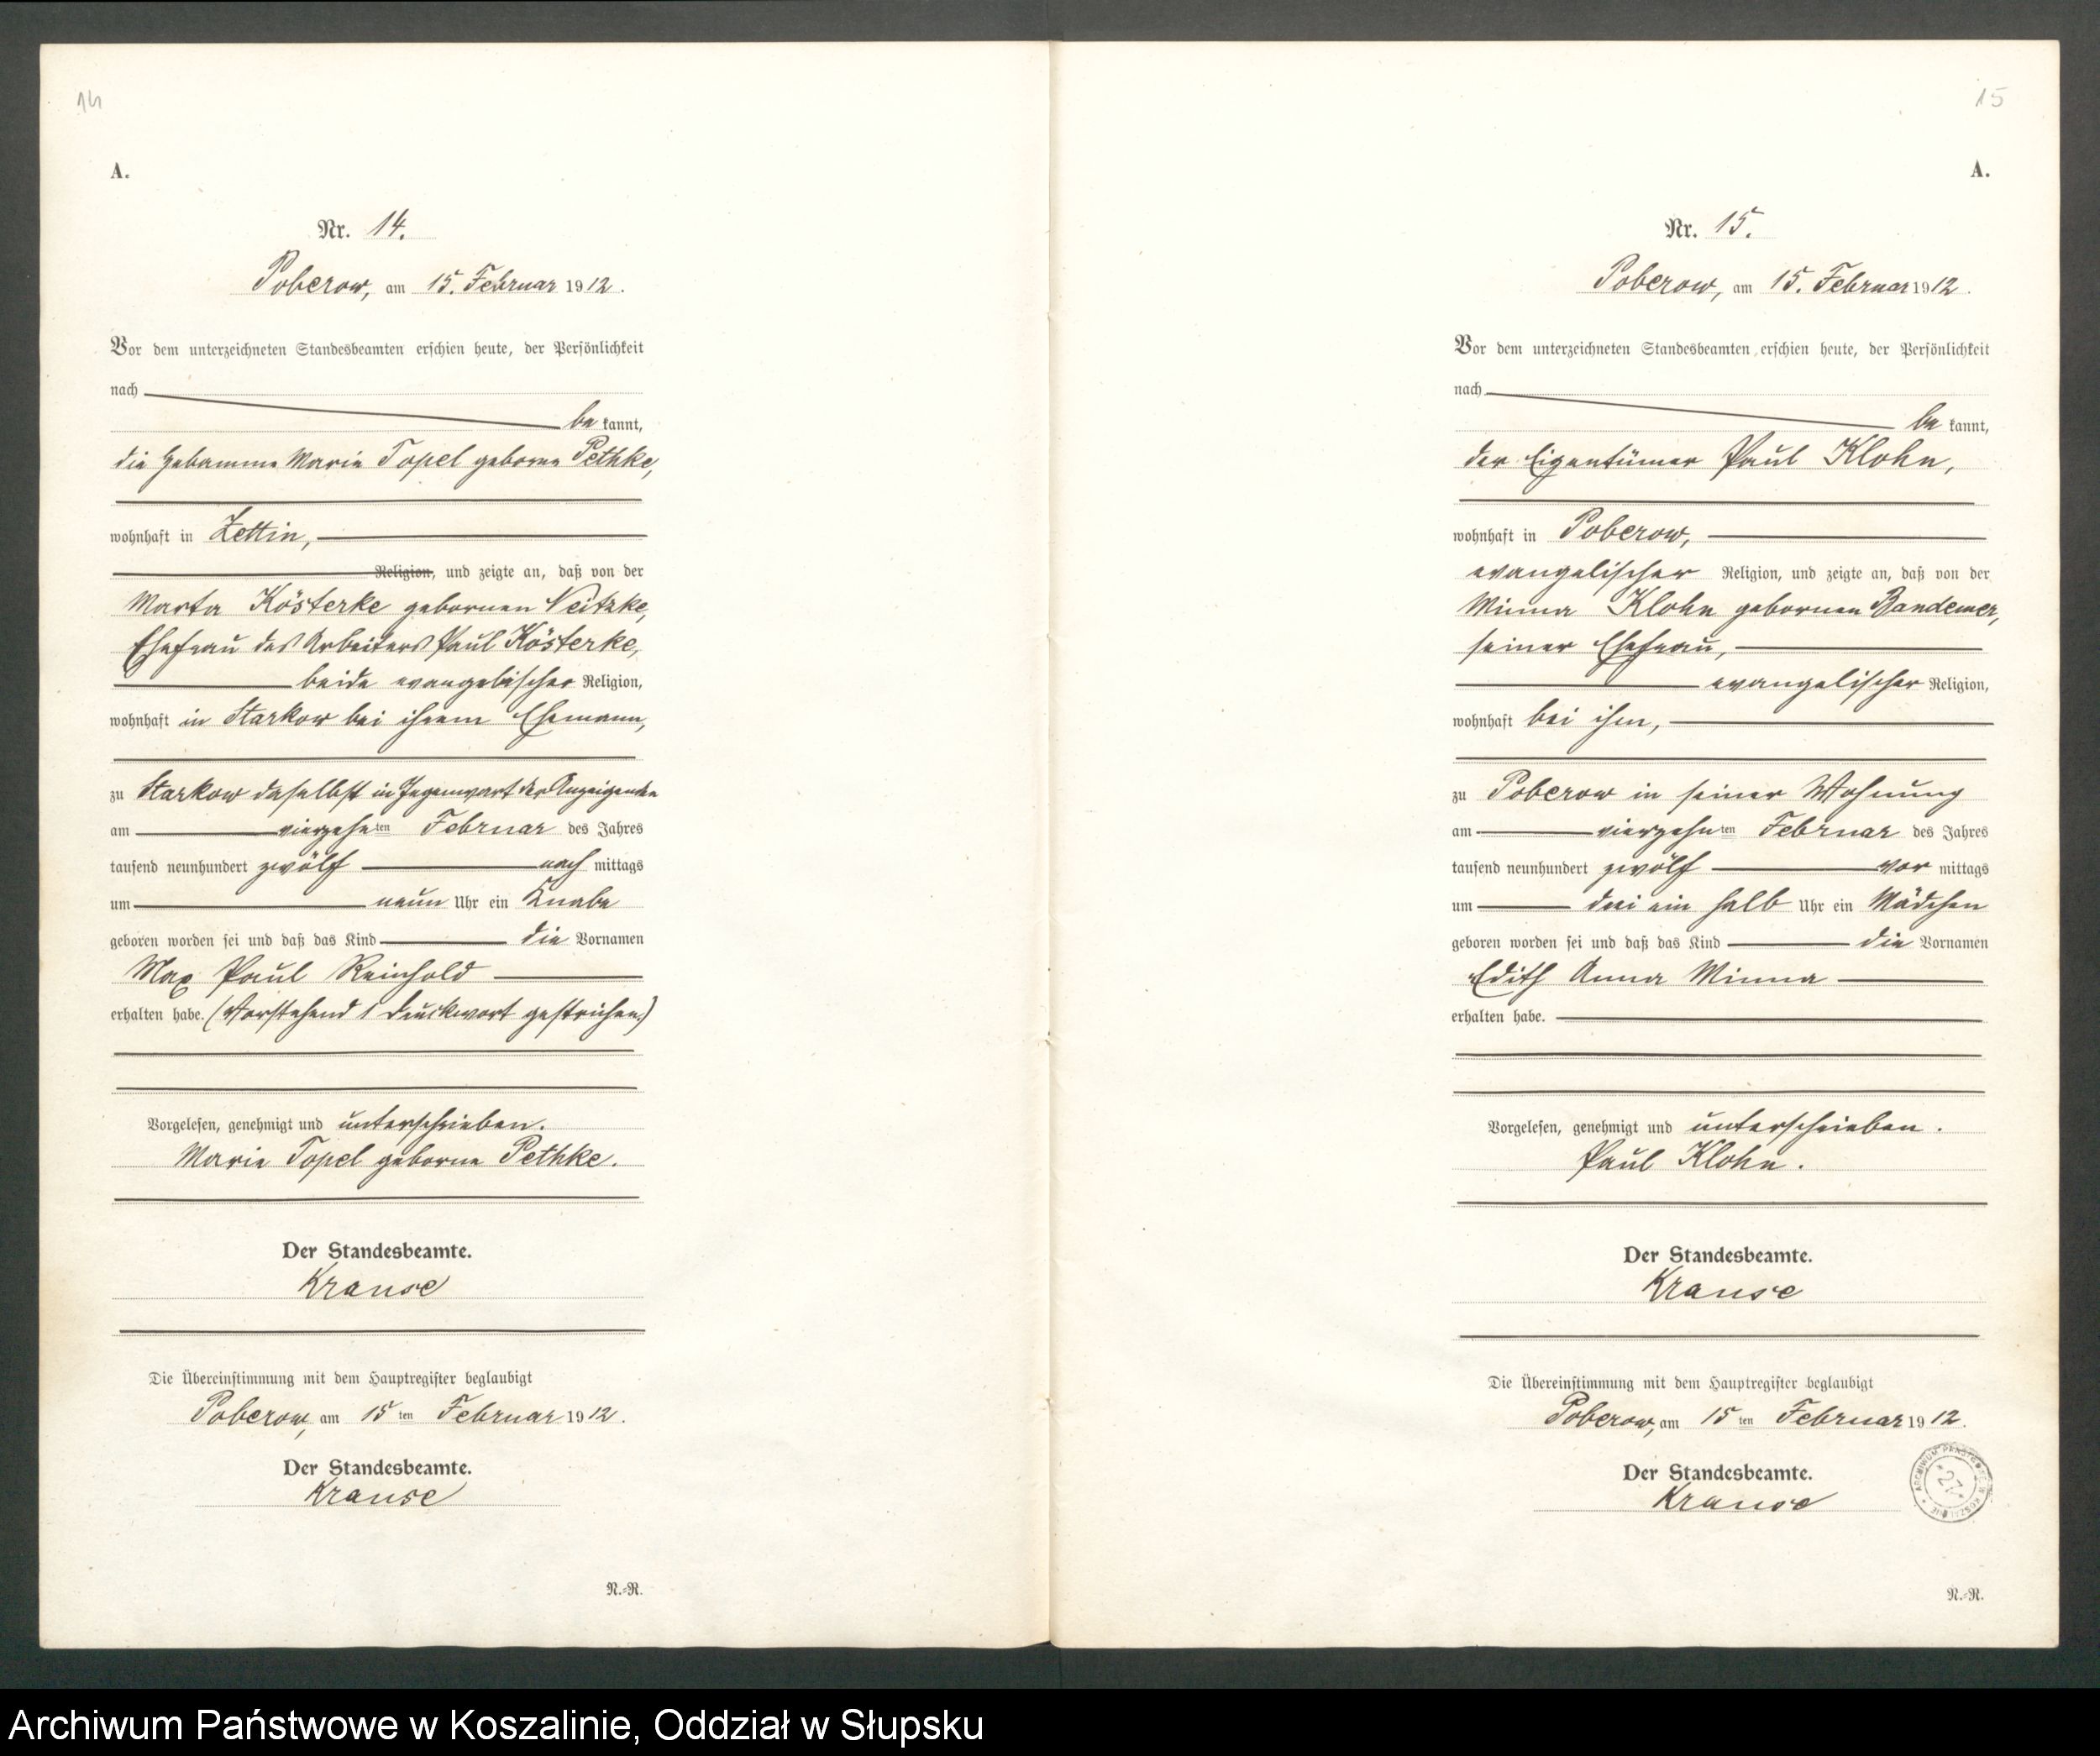 14
A.
Nr. 14.
Poberow, am 15. Februar 1912.
Vor dem unterzeichneten Standesbeamten erschien heute, der Persönlichkeit
nach
be kannt,
die Hebamme Marie Topel geborne Pethke,
wohnhaft in Zettin,
Religion, und zeigte an, daß von der
Marta Kösterke gebornen Neitzke,
Ehefrau des Arbeiters Paul Kösterke,
beide evangelischer Religion,
wohnhaft in Starkow bei ihrem Ehemann,
zu Starkow daselbst in Gegenwart der Anzeigenden
am vierzehnten Februar des Jahres
tausend neunhundert zwölf nach mittags
um neun Uhr ein Knabe
geboren worden sei und daß das Kind die Vornamen
Max Paul Reinhold
erhalten habe. (Vorstehend 1 Druckwort gestrichen.)
Vorgelesen, genehmigt und unterschrieben.
Marie Topel geborne Pethke.
Der Standesbeamte.
Krause
Die Übereinstimmung mit dem Hauptregister beglaubigt
Poberow, am 15ten Februar 1912.
Der Standesbeamte.
Krause
N.-R.
15
A.
Nr. 15.
Poberow, am 15. Februar 1912.
Vor dem unterzeichneten Standesbeamten erschien heute, der Persönlichkeit
nach
be kannt,
der Eigentümer Paul Klohn,
wohnhaft in Poberow,
evangelischer Religion, und zeigte an, daß von der
Minna Klohn gebornen Bandemer,
seiner Ehefrau,
evangelischer Religion,
wohnhaft bei ihm,
zu Poberow in seiner Wohnung
am vierzehnten Februar des Jahres
tausend neunhundert zwölf vor mittags
um drei ein halb Uhr ein Mädchen
geboren worden sei und daß das Kind die Vornamen
Edith Anna Minna
erhalten habe.
Vorgelesen, genehmigt und unterschrieben.
Paul Klohn.
Der Standesbeamte.
Krause
Die Übereinstimmung mit dem Hauptregister beglaubigt
Poberow, am 15ten Februar 1912.
Der Standesbeamte.
Krause
ARCHIWUM PAŃSTWOWE W KOSZALINIE
27
N.-R.
Archiwum Państwowe w Koszalinie, Oddział w Słupsku